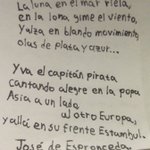 La luna en el mar riela,
en la lona gime el viento,
y alza en blando movimiento
olas de plata y azur...
Y va el capitán pirata
cantando alegre en la popa
Asia a un lado,
al otro Europa,
y allá en su frente Estambul.
José de Espronceda